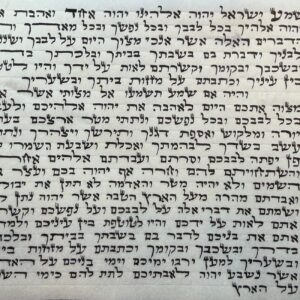 שמע ישראל יהוה אלהינו יהוה אחד ואהבת
יהוה אלהיך בכל לבבך ובכל נפשך ובכל מאדך
הדברים האלה אשר אנכי מצוך היום על לבבך
ודברת בם בשבתך בביתך ובלכתך
ובשכבך ובקומך וקשרתם לאות על ידך והיו
בין עיניך וכתבתם על מזזות ביתך ובשעריך
והיה אם שמע תשמעו אל מצותי אשר
אתכם היום לאהבה את יהוה אלהיכם
לבבכם ובכל נפשכם ונתתי מטר ארצכם
ומלקוש ואספת דגנך ותירשך ויצהרך
בשדך לבהמתך ואכלת ושבעת השמרו
יפתה לבבכם וסרתם ועבדתם אלהים
להם וחרה אף יהוה בכם ועצר
השמים ולא יהיה מטר והאדמה לא תתן את
ואבדתם מהרה מעל הארץ הטבה אשר יהוה
ושמתם את דברי אלה על לבבכם ועל נפשכם
אתם לאות על ידכם והיו לטוטפת בין עיניכם
אתם את בניכם לדבר בם בשבתך בביתך
ובשכבך ובקומך וכתבתם על מזוזות
ובשעריך למען ירבו ימיכם וימי בניכם על
אשר נשבע יהוה לאבתיכם לתת להם כימי
על הארץ